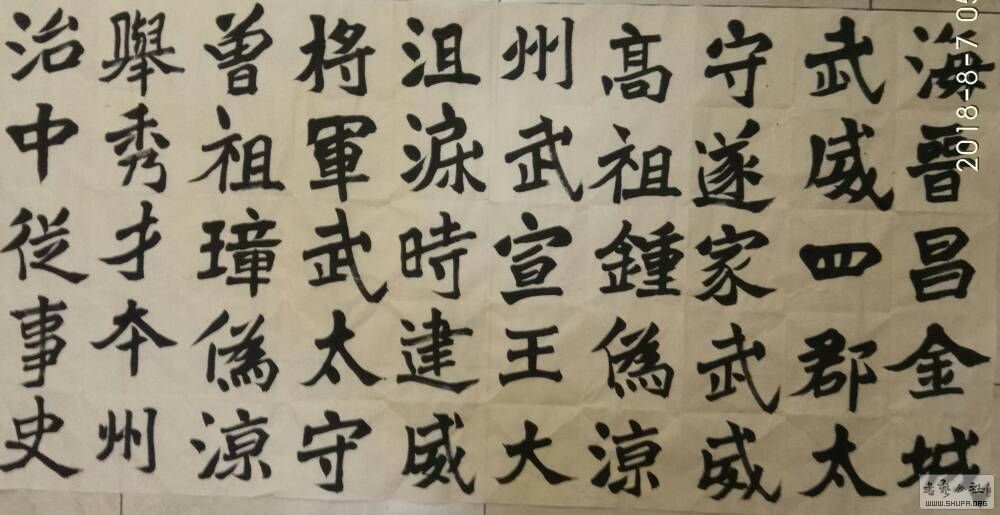 海晉昌金城
武威四郡太
守遂家武威
高祖鍾偽涼
州武宣王大
沮渠時建威
將軍武太守
曾祖璋偽涼
舉秀才本州
治中從事史
2018-8-7 05
书艺公社
WWW.SHUFA.ORG